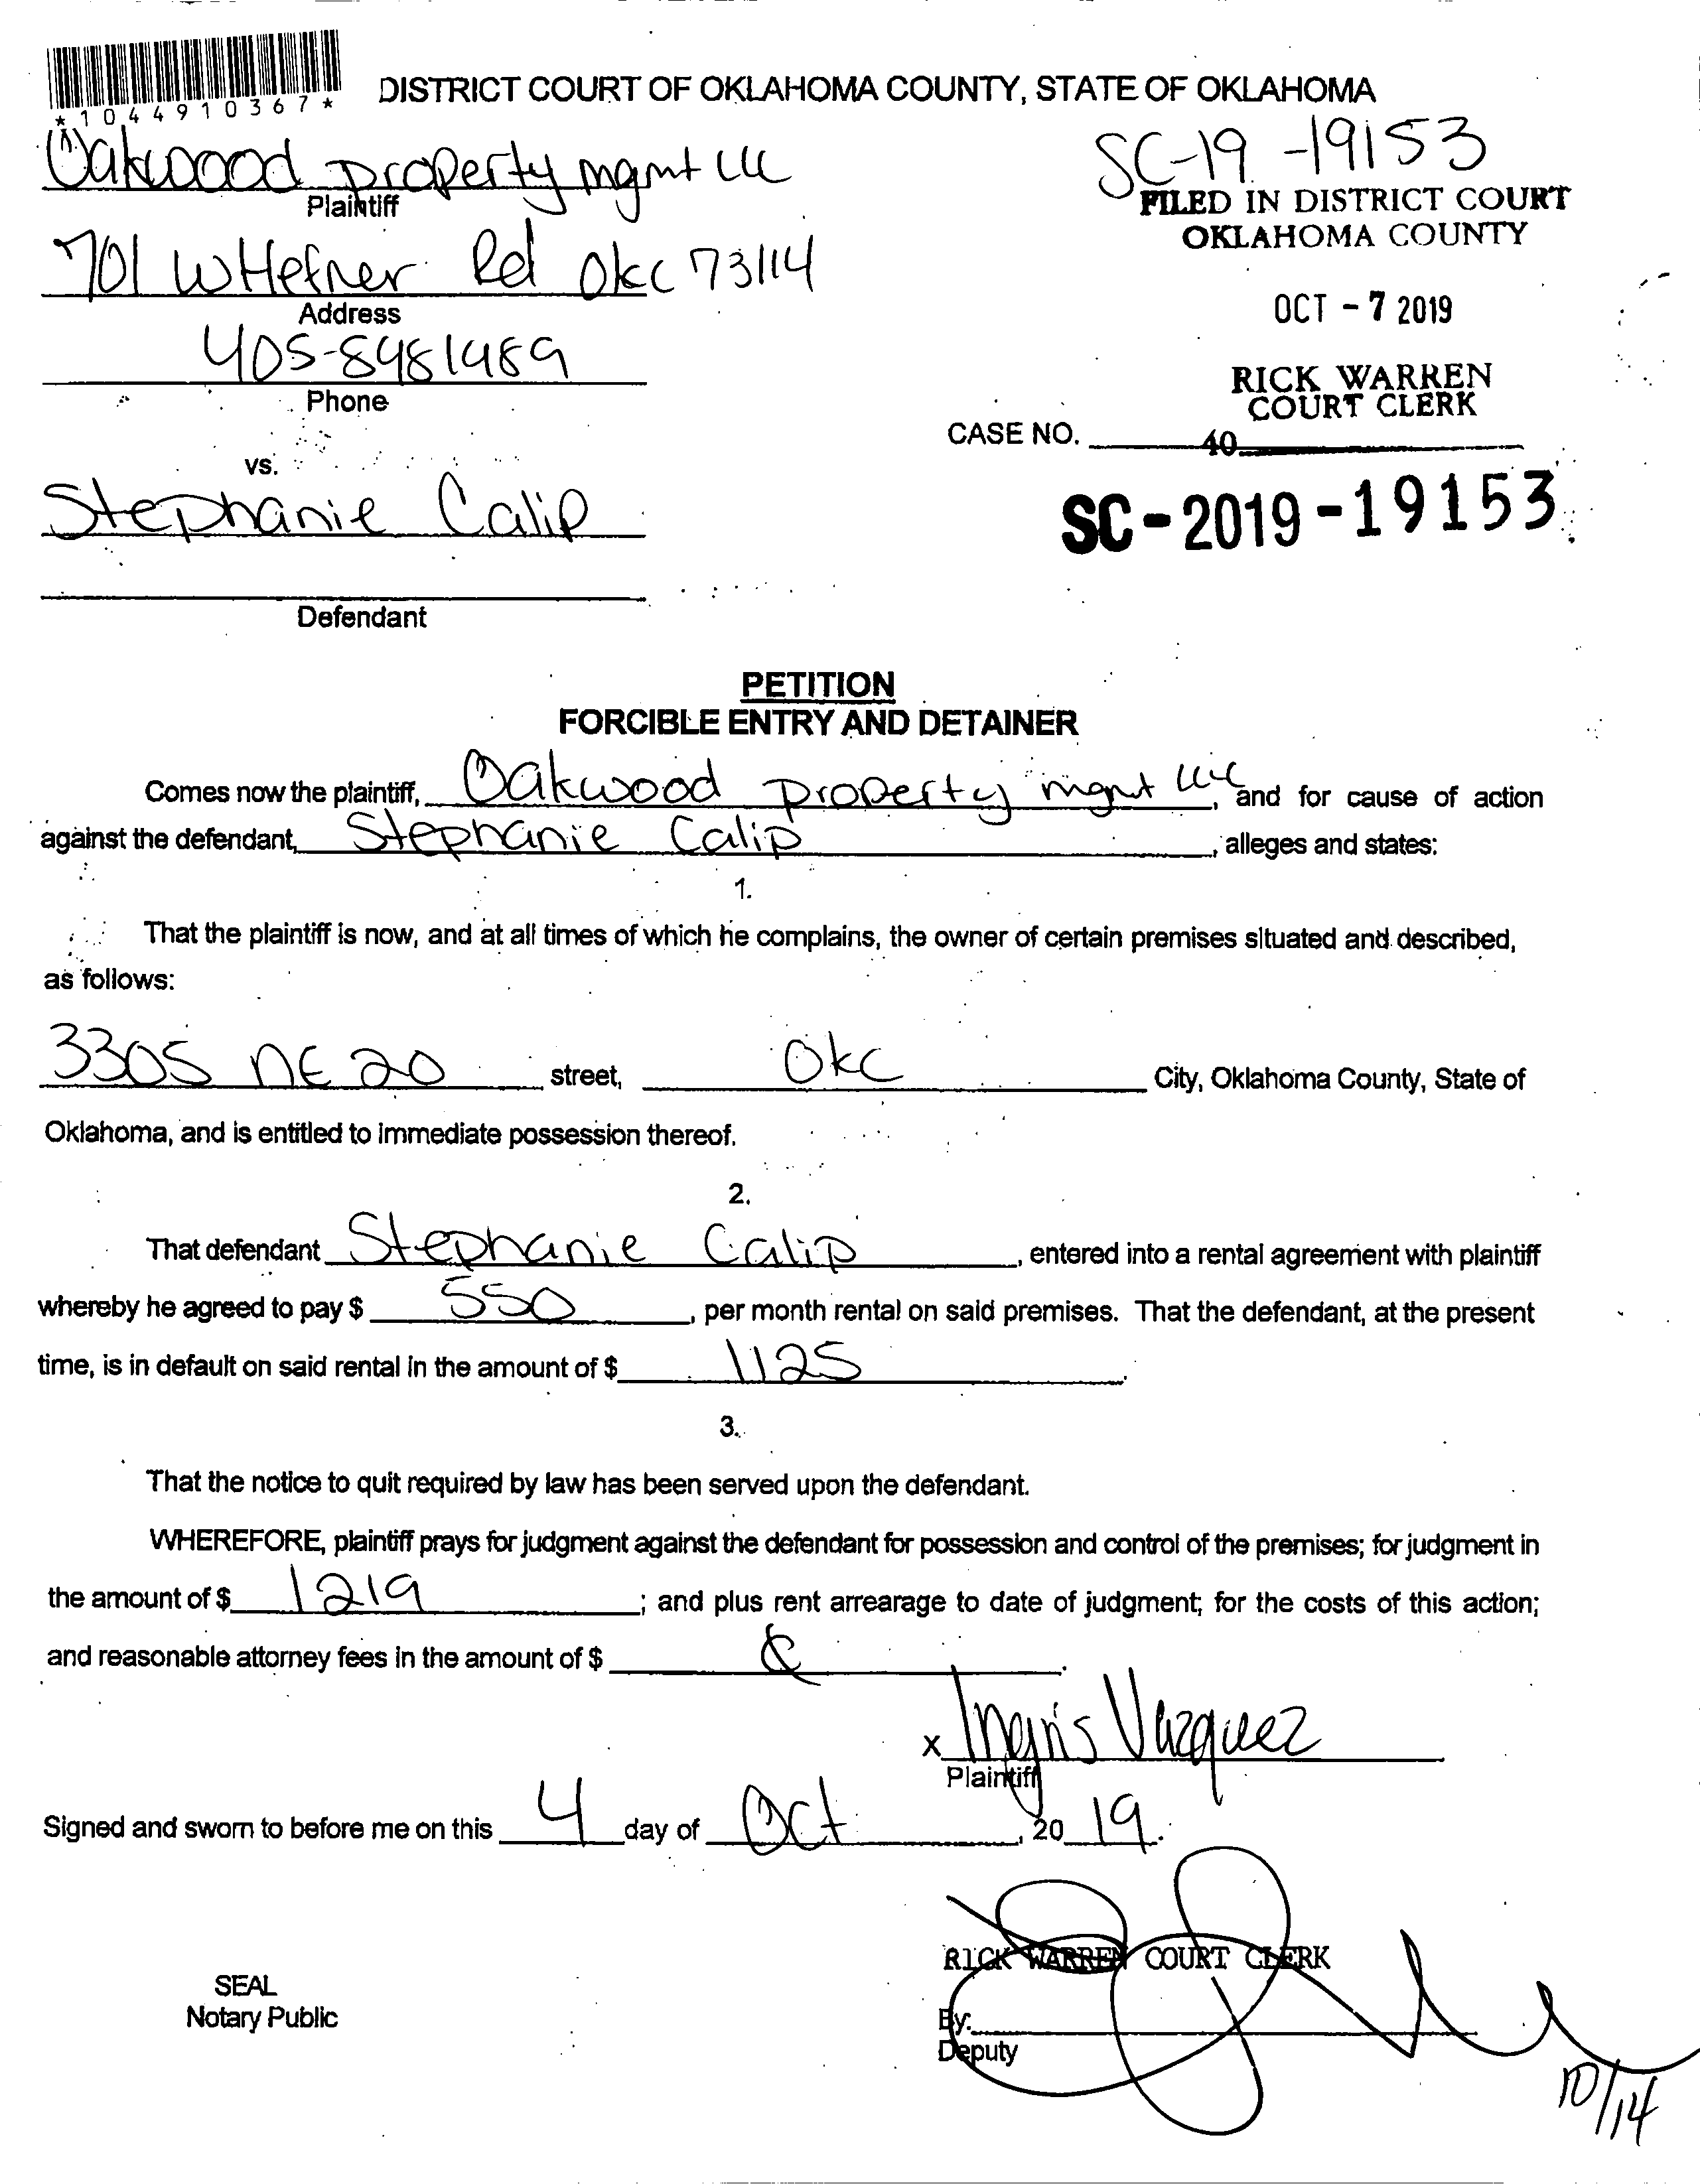 *1044910367*
DISTRICT COURT OF OKLAHOMA COUNTY, STATE OF OKLAHOMA
Oakwood property mgmt LLC
Plaintiff
SC-19-19153
FILED IN DISTRICT COURT
OKLAHOMA COUNTY
701 W Hefner Rd Okc 73114
Address
OCT - 7 2019
405-8481489
Phone
RICK WARREN
COURT CLERK
CASE NO.
40
vs.
Stephanie Calip
SC-2019-19153
Defendant
PETITION
FORCIBLE ENTRY AND DETAINER
Comes now the plaintiff, Oakwood property mgmt LLC, and for cause of action
against the defendant, Stephanie Calip, alleges and states:
1.
That the plaintiff is now, and at all times of which he complains, the owner of certain premises situated and described,
as follows:
3305 NE 20 street, Okc City, Oklahoma County, State of
Oklahoma, and is entitled to immediate possession thereof.
2.
That defendant Stephanie Calip, entered into a rental agreement with plaintiff
whereby he agreed to pay $ 550, per month rental on said premises. That the defendant, at the present
time, is in default on said rental in the amount of $ 1125.
3.
That the notice to quit required by law has been served upon the defendant.
WHEREFORE, plaintiff prays for judgment against the defendant for possession and control of the premises; for judgment in
the amount of $ 1219; and plus rent arrearage to date of judgment; for the costs of this action;
and reasonable attorney fees in the amount of $
x Vazquez
Plaintiff
Signed and sworn to before me on this 4 day of Oct, 20 19.
RICK WARREN COURT CLERK
SEAL
Notary Public
By:
Deputy
10/14